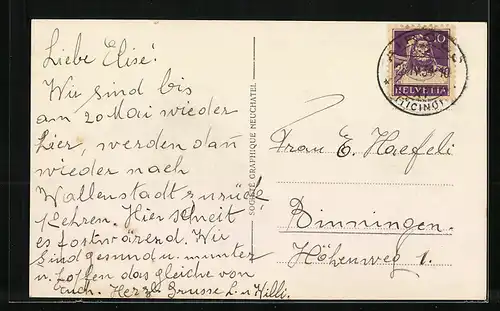 Liebe Elise!
Wir sind bis
am 20 Mai wieder
hier, werden dan
wieder nach
Wallenstadt zurü
kehren. Hier schneit
es fostwärend. Wir
sind gesund u. munter
u. hoffen das gleiche von
Euch. Herzl. Grusse L. u Willi.
SOCIÉTÉ GRAPHIQUE NEUCHATEL
10
HELVETIA
(TICINO)
Frau E. Haefeli
Binningen.
Höhenweg 1.